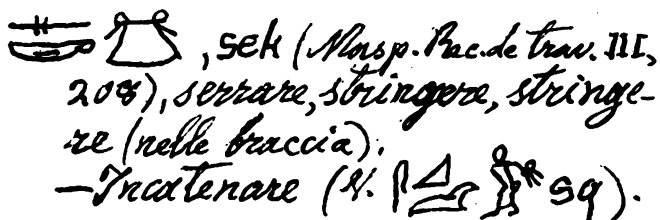 𓊃𓎡, sek (Masp. Rec. de trav. III,
208), serrare, stringere, stringe-
re (nelle braccia).
—Incatenare (V. sq).